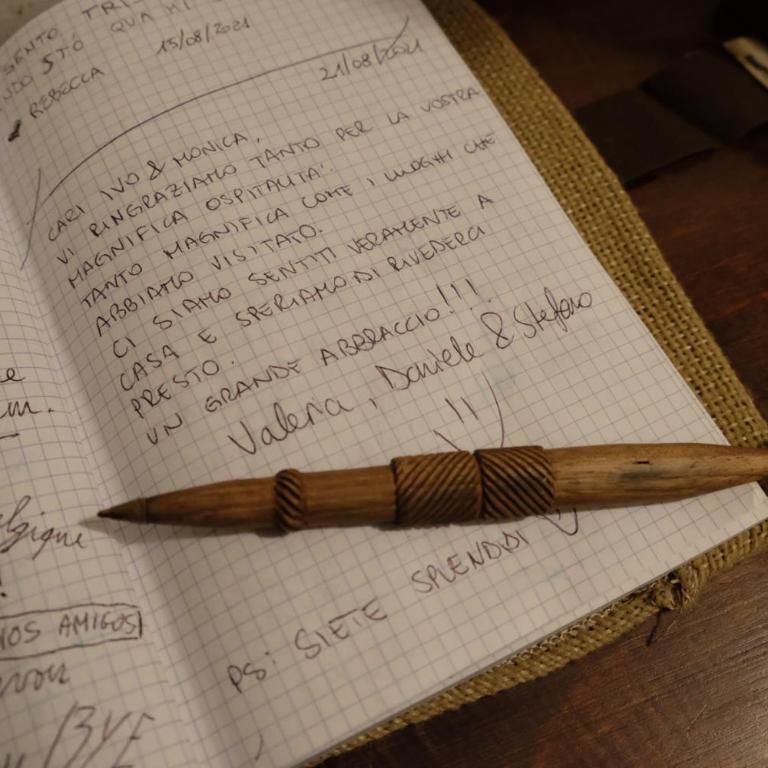 SENTO TRI
NDO STÒ QUA MI
REBECCA 15/08/2021
21/08/2021
CARI IVO & MONICA,
VI RINGRAZIAMO TANTO PER LA VOSTRA
MAGNIFICA OSPITALITA'.
TANTO MAGNIFICA COME I LUOGHI CHE
ABBIAMO VISITATO.
CI SIAMO SENTITI VERAMENTE A
CASA E SPERIAMO DI RIVEDERCI
PRESTO.
UN GRANDE ABBRACCIO!!!
Valeria, Daniele & Stefano
PS: SIETE SPLENDIDI
elgique
!
NOS AMIGOS
/BYE